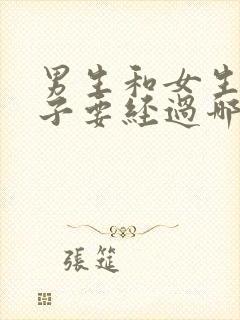 男生和女生
子要經過哪
張筵